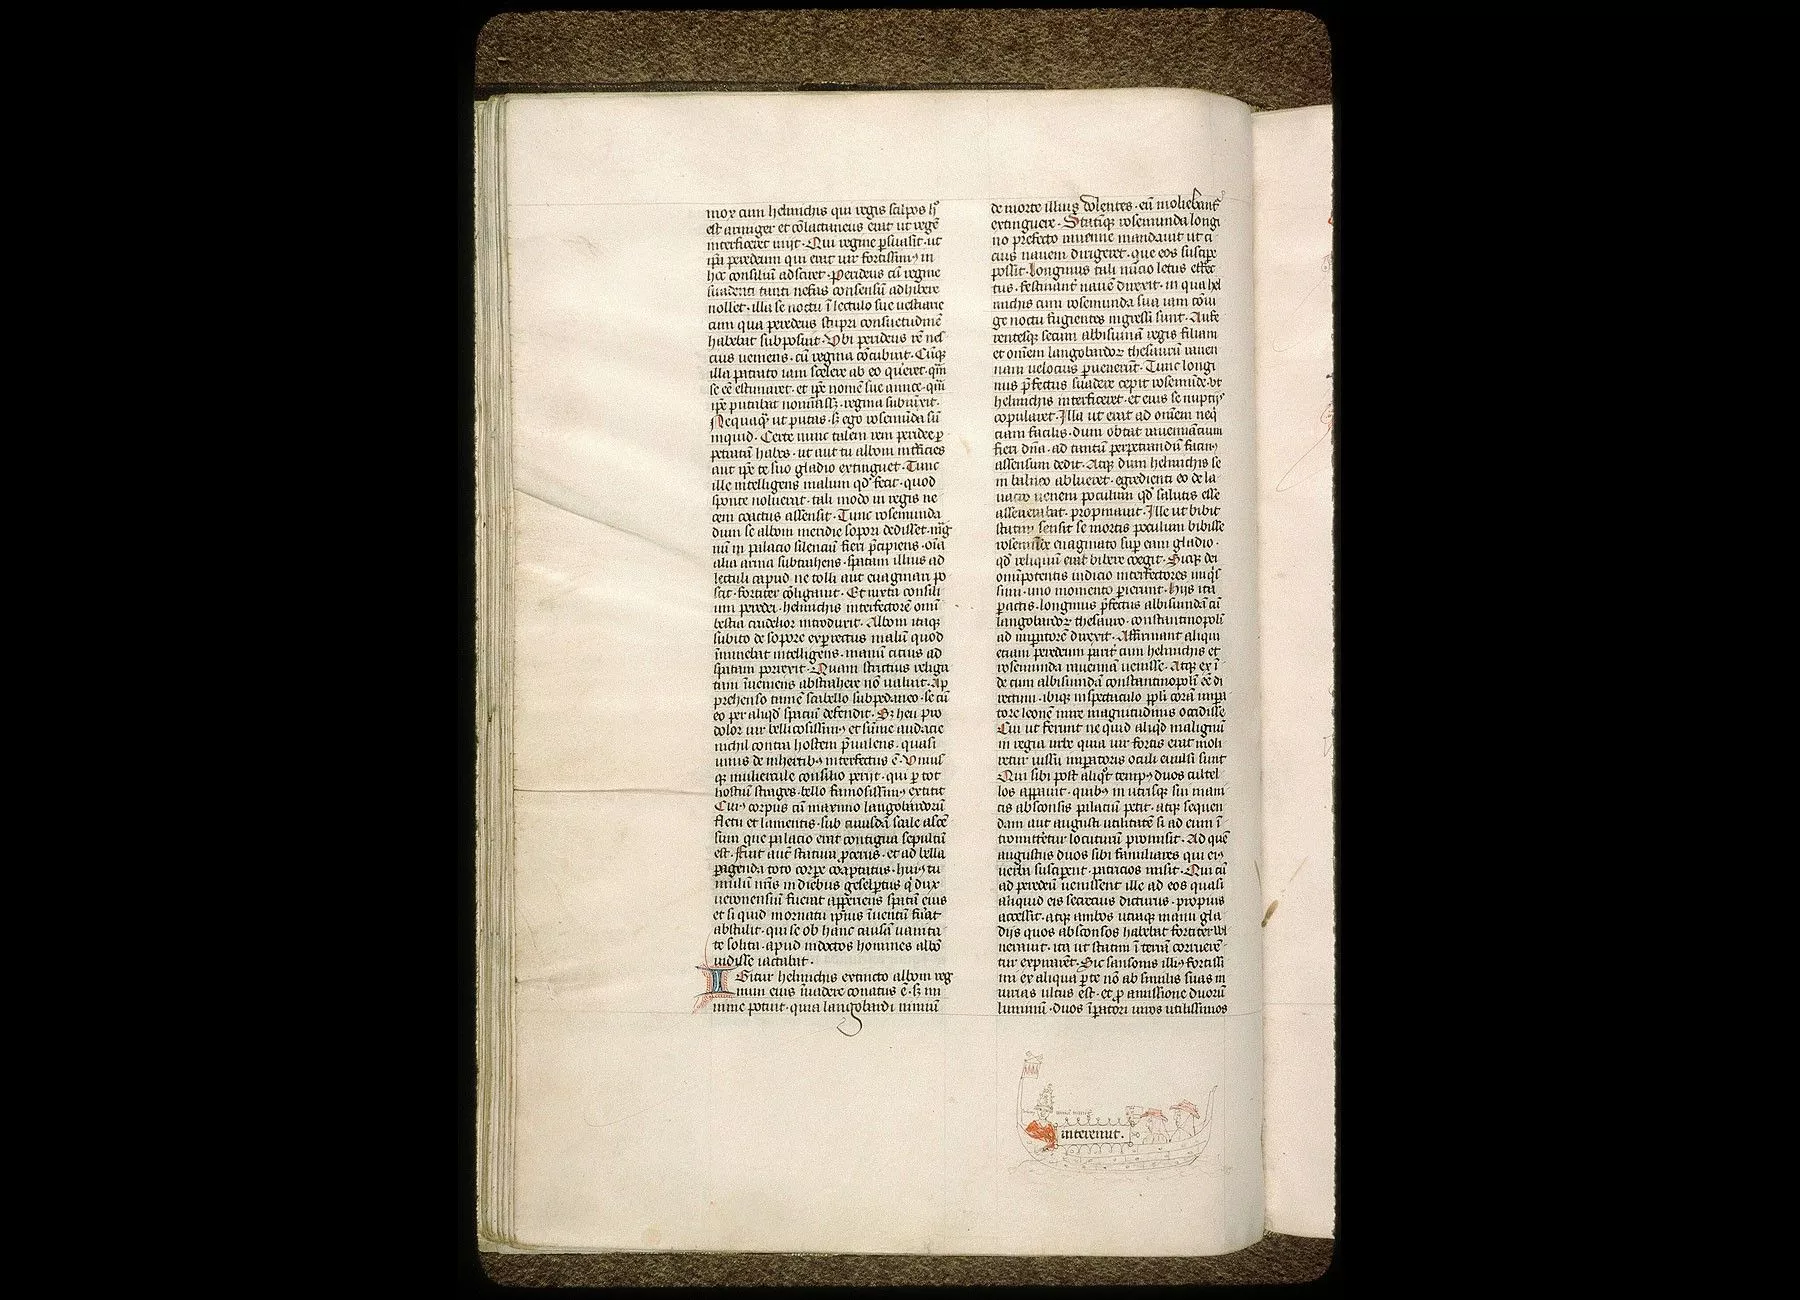 mox cum helmichis qui regis scilpor h'
est armiger et cōlactaneus erat ut regē
interficeret inijt · Qui regine p̄suasit · ut
ip̄i peredeum qui erat uir fortissim9 in
hoc consilium adsciret · Peredeus cū regine
suadenti tanti nefas consensū adhibere
nollet · illa se noctu ī lectulo sue uestiarie
cum qua peredeus stupri consuetudinē
habebat subposuit · Vbi peredeus rē nes
cius ueniens · cū regina cōcubuit · Cūq;
illa patrato iam scelere ab eo quereret · qm̄
se eē estimaret · et ip̄e nomē sue amice · qm̄
ip̄e putabat nominass; · regina subiūxit ·
Nequaq̄ ut putas · s; ego rosemūda sū
inquid · Certe nunc talem rem peredee p̱
petratā habes · ut aut tu alboin int̄ficies
aut ip̄e te suo gladio extinguet · Tunc
ille intelligens malum qd̄ fecit · quod
sponte noluerat · tali modo in regis ne
cem coactus assensit · Tunc rosemunda
dum se alboin meridie sopori dedisset · mag
nū in palacio silenciū fieri p̄cipiens · oīa
alia arma subtrahens · spatam illius ad
lectuli capud ne tolli aut euaginari po
sset · fortiter cōligauit · Et iuxta consili
um peredei · helmichis interfectorē omī
bestia crudelior introduxit · Alboin itaq;
subito de sopore exp̱rectus malū quod
īminebat intelligens · manū citius ad
spatam porrexit · Quam strictius religa
tam īueniens abstrahere nō ualuit · Ap
prehenso tamē scabello subpedaneo · se cū
eo per aliqd̄ spatiū defendit · S; heu pro
dolor uir bellicosissim9 et sūme audacie
nichil contra hostem p̄ualens · quasi
unus de inhertib9 interfectus ē · Vnius
q; muliercule consilio perijt · qui p̱ tot
hostiū strages · bello famosissim9 extitit
Cui9 corpus cū maximo langobardorū
fletu et lamentis · sub cuiusdā scale asce
sum que palacio erat contigua sepultū
est · Fuit autē statura p̱cerus · et ad bella
p̱agenda toto corpe coaptatus · hui9 tu
mulū nr̄is in diebus giselp̱tus q̄ dux
ueronensiū fuerat app̱eriens spatā eius
et si quid in ornatu ip̄ius īuentū fūat
abstulit · qui se ob hanc causā uanita
te solita · apud indoctos homines albō
uidisse iactabat ·
Igitur helmichis extincto alboin reg
num eius īuadere conatus ē · s; mi
nime potuit · quia langobardi nimiū
de morte illius dolentes · eū moliebant̄
extinguere · Statimq; rosemunda longi
no prefecto rauenne mandauit ut ci
cius nauem dirigeret · que eos suscipe
possit · Longinus tali nūcio letus effec
tus · festinant̄ nauē direxit · in qua hel
michis cum rosemunda sua iam cōiu
ge noctu fugientes ingressi sunt · Aufe
rentesq; secum albisuinā regis filiam
et omēm langobardo⁊ thesaurū rauen
nam uelocius p̱uenerūt · Tunc longi
nus p̄fectus suadere cepit rosemūde · ut
helmichis interficeret · et eius se nuptij9
copularet · Illa ut erat ad omēm neq̄
ciam facilis · dum obtat rauennatium
fieri dn̄a · ad tantū perpetrandū facin9
assensum dedit · Atq; dum helmichis se
in balneo ablueret · egredienti eo de la
uacro ueneni poculum qd̄ salutis esse
asseuerabat · propinauit · Ille ut bibit
statim sensit se mortis poculum bibisse
rosemūde euaginato sup̱ eam gladio ·
qd̄ reliquum erat bibere coegit · Sicq; dei
omipotentis iudicio interfectores iniq̄s
simi · uno momento p̱ierunt · Hijs ita
p̱actis · longinus p̄fectus albisuindā cū
langobardo⁊ thesauro · constantinopolī
ad imp̱atorē direxit · Affirmant aliqui
etiam peredeum parit̄ cum helmichis et
rosemunda rauennā uenisse · Atq; ex ī
de cum albisuindā constantinopolī eē di
rectum · ibiq; in spectaculo pp̄li corā imp̱a
tore leonē mire magnitudinis occidisse
Cui ut ferunt ne quid aliqd̄ malignū
in regia urbe quia uir fortis erat moli
retur iussu imp̱atoris oculi euulsi sunt
Qui sibi post aliqd̄ temp9 duos cultel
los aptauit · quib9 in utrisq; sui mani
cis absconsis palatiū petit · atq; sequen
dam aut augusti utilitatē si ad eum ī
tromitteretur locuturū promisit · Ad quē
augustus duos sibi familiares qui ei9
uerba susciperent · patricios misit · Qui cū
ad peredeū uenissent ille ad eos quasi
aliquid eis secrecius dicturus · propius
accessit · atq; ambos utraq; manu gla
dijs quos absconsos habebat fortiter vl
nerauit · ita ut statim ī terrā corruere
tur expirarēt · Sic sansonis illi9 fortissi
mi ex aliqua p̱te nō ab similis suas in
iurias ultus est · et p̱ amissione duorū
luminū · duos īp̱atori uiros utilissimos
interemit ·